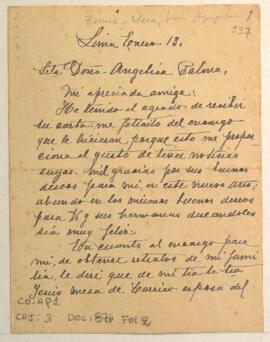 337
Lima, Enero 13.
Srta Doña Angelica Palma,
Mi apreciada amiga:
He tenido el agrado de recibir
su carta: me felicito del encargo
que le hicieran porque esto me propor
ciona el gusto de tener noticias
suyas. Mil gracias por sus buenos
deseos para mi, en este nuevo año;
abundo en los mismos buenos deseos
para V. y sus hermanas deseandoles
sea muy feliz.
En cuanto al encargo para
mi, de obtener retratos de mi fami
lia, le diré que de mi tia la tia
Jesús Mesa de Carrico esposa del
CO:AP1
CAJ: 3 DOC: 876 FOL: 2